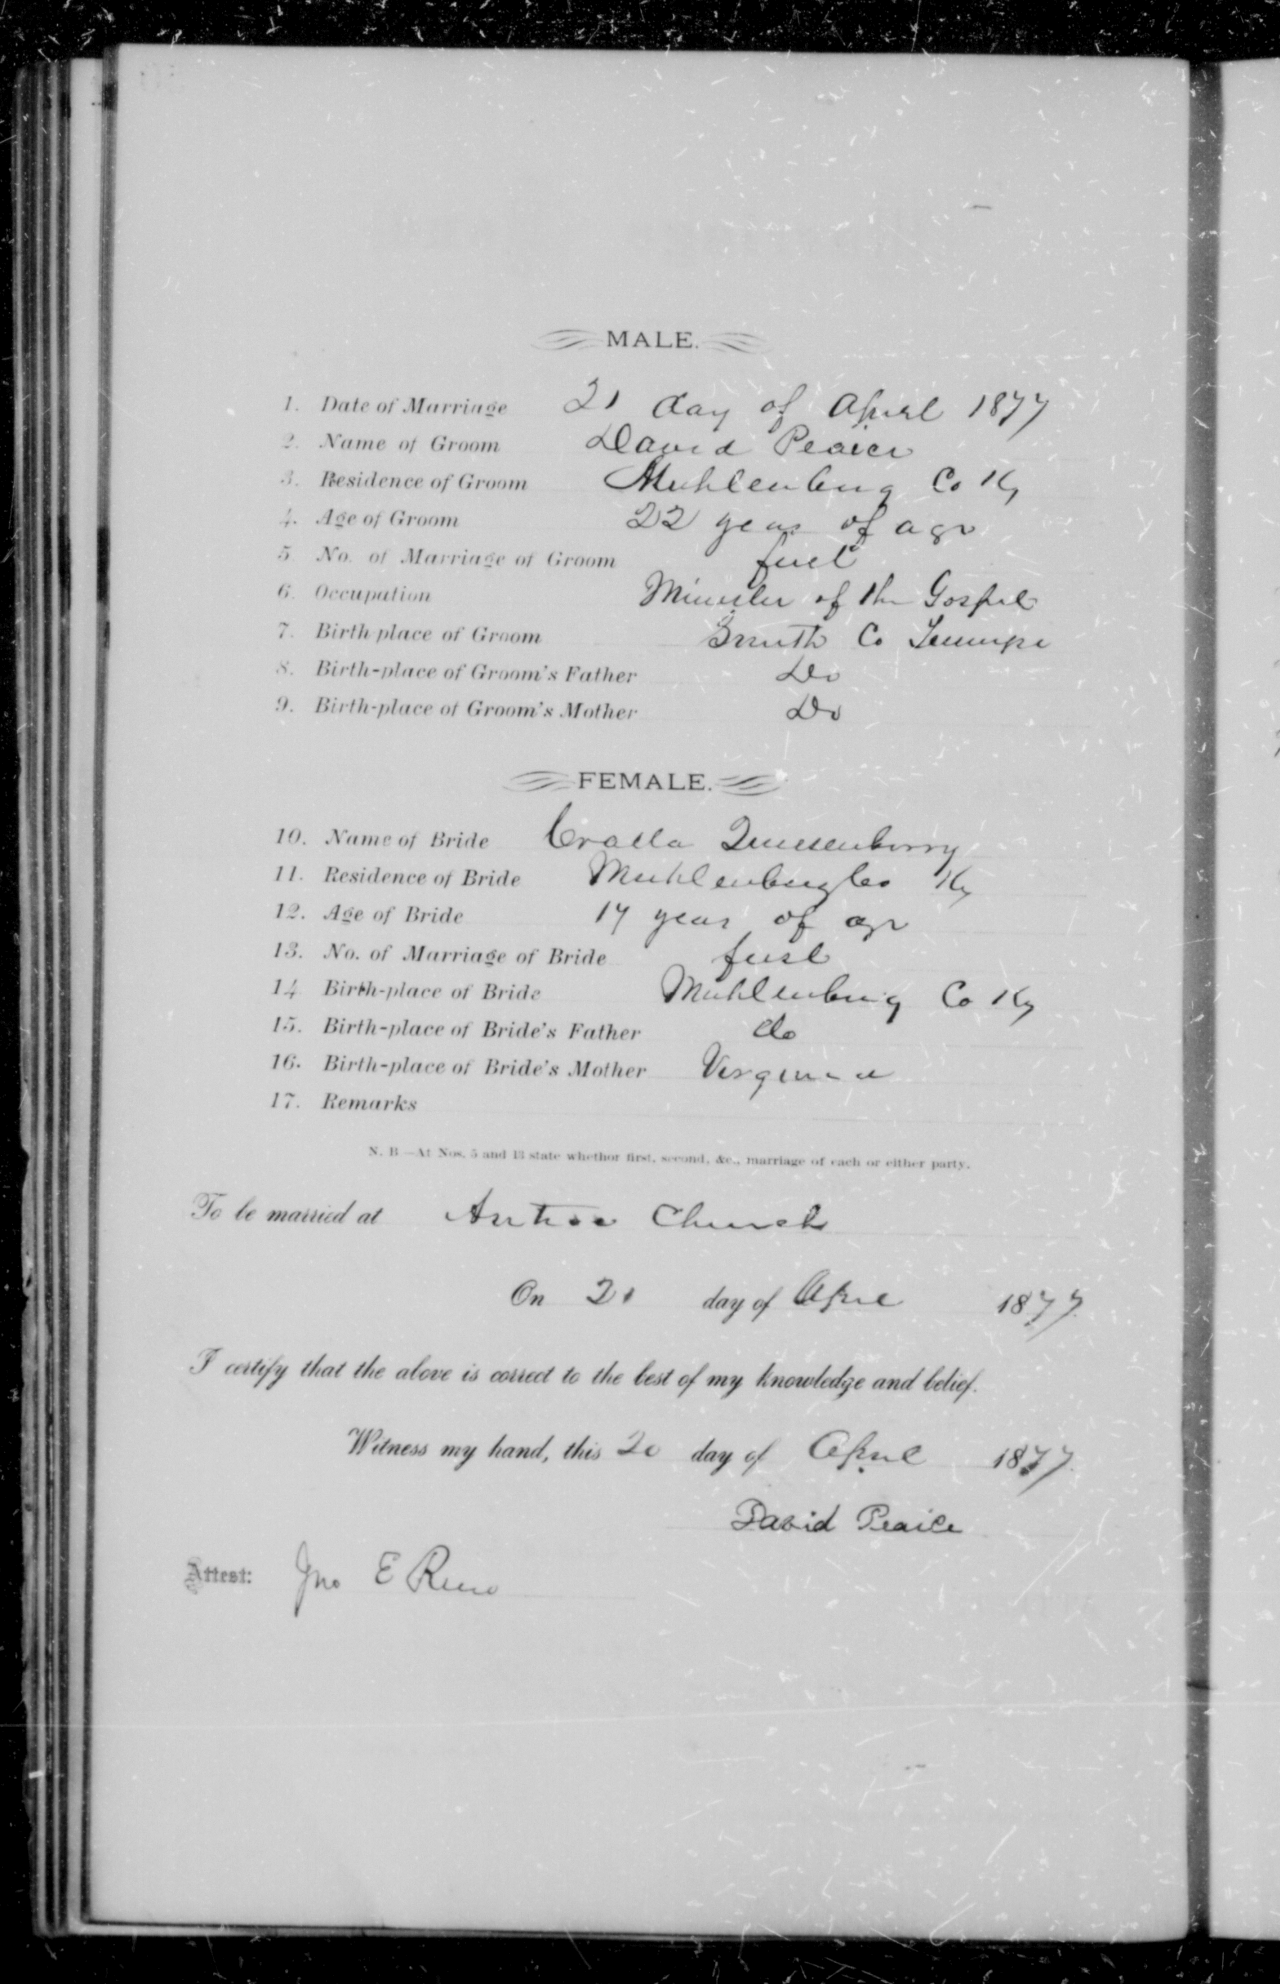 MALE.
1. Date of Marriage 21 day of April 1877
2. Name of Groom David Pearce
3. Residence of Groom Muhlenberg Co Ky
4. Age of Groom 22 years of age
5 No. of Marriage of Groom first
6. Occupation Minister of the Gospel
7. Birth place of Groom Smith Co
8. Birth-place of Groom's Father Do
9. Birth-place of Groom's Mother Do
FEMALE.
10. Name of Bride Quesenberry
11. Residence of Bride Muhlenberg Co Ky
12. Age of Bride 17 years of age
13. No. of Marriage of Bride first
14 Birth-place of Bride Muhlenberg Co Ky
15. Birth-place of Bride's Father do
16. Birth-place of Bride's Mother Virginia
17. Remarks
N. B—At Nos. 5 and 13 state whethor first, second, &c., marriage of each or either party.
To be married at Church
On 21 day of April 1877
I certify that the above is correct to the best of my knowledge and belief.
Witness my hand, this 20 day of April 1877.
David Pearce
Attest: Jno E Reno